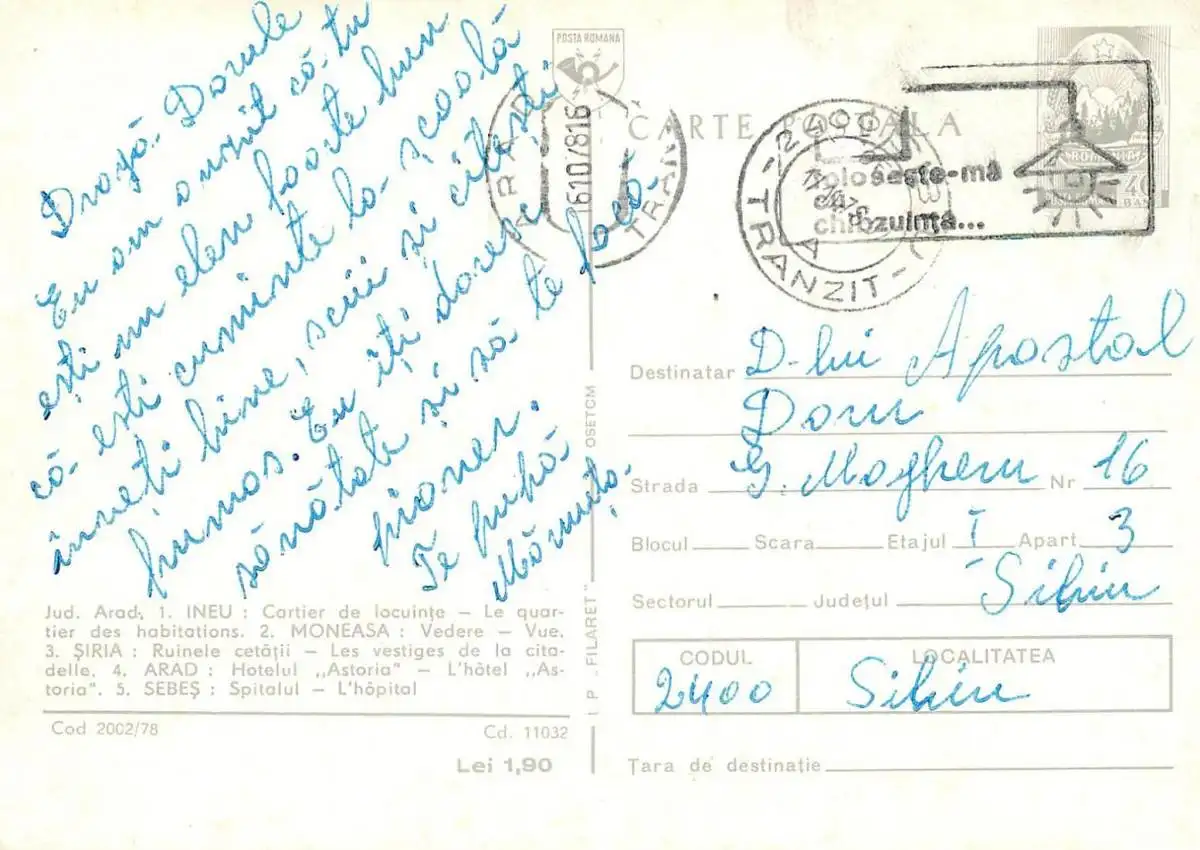 Dragă Dorule
Eu am auzit că tu
ești un elev foarte bun
că ești cuminte la școală
înveți bine, scrii și citești
frumos. Eu îți doresc
sănătate și să te facă
pioner.
Te pupă
Mămuța
Jud. Arad, 1. INEU : Cartier de locuințe – Le quar-
tier des habitations. 2. MONEASA : Vedere – Vue.
3. ȘIRIA : Ruinele cetății – Les vestiges de la cita-
delle. 4. ARAD : Hotelul „Astoria” – L'hôtel „As-
toria”. 5. SEBEȘ : Spitalul – L'hôpital
Cod 2002/78
Cd. 11032
Lei 1,90
I P „FILARET”
OSETCM
POSTA ROMANA
ARAD
16107816
TRAN
CARTE POSTALA
2400
TRANZIT
Folosește-mă
cu
chibzuință...
ROMANIA
40
BANI
Destinatar D-lui Apostol
Doru
Strada G. Magheru Nr 16
Blocul Scara Etajul I Apart 3
Sectorul Județul Sibiu
CODUL LOCALITATEA
2400 Sibiu
Țara de destinație